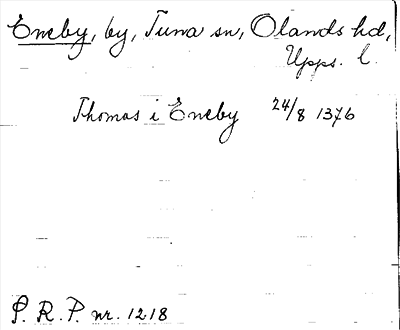 Eneby, by, Tuna sn, Olands hd,
Upps. l.
Thomas i Eneby 24/8 1376
P. R. P. nr. 1218